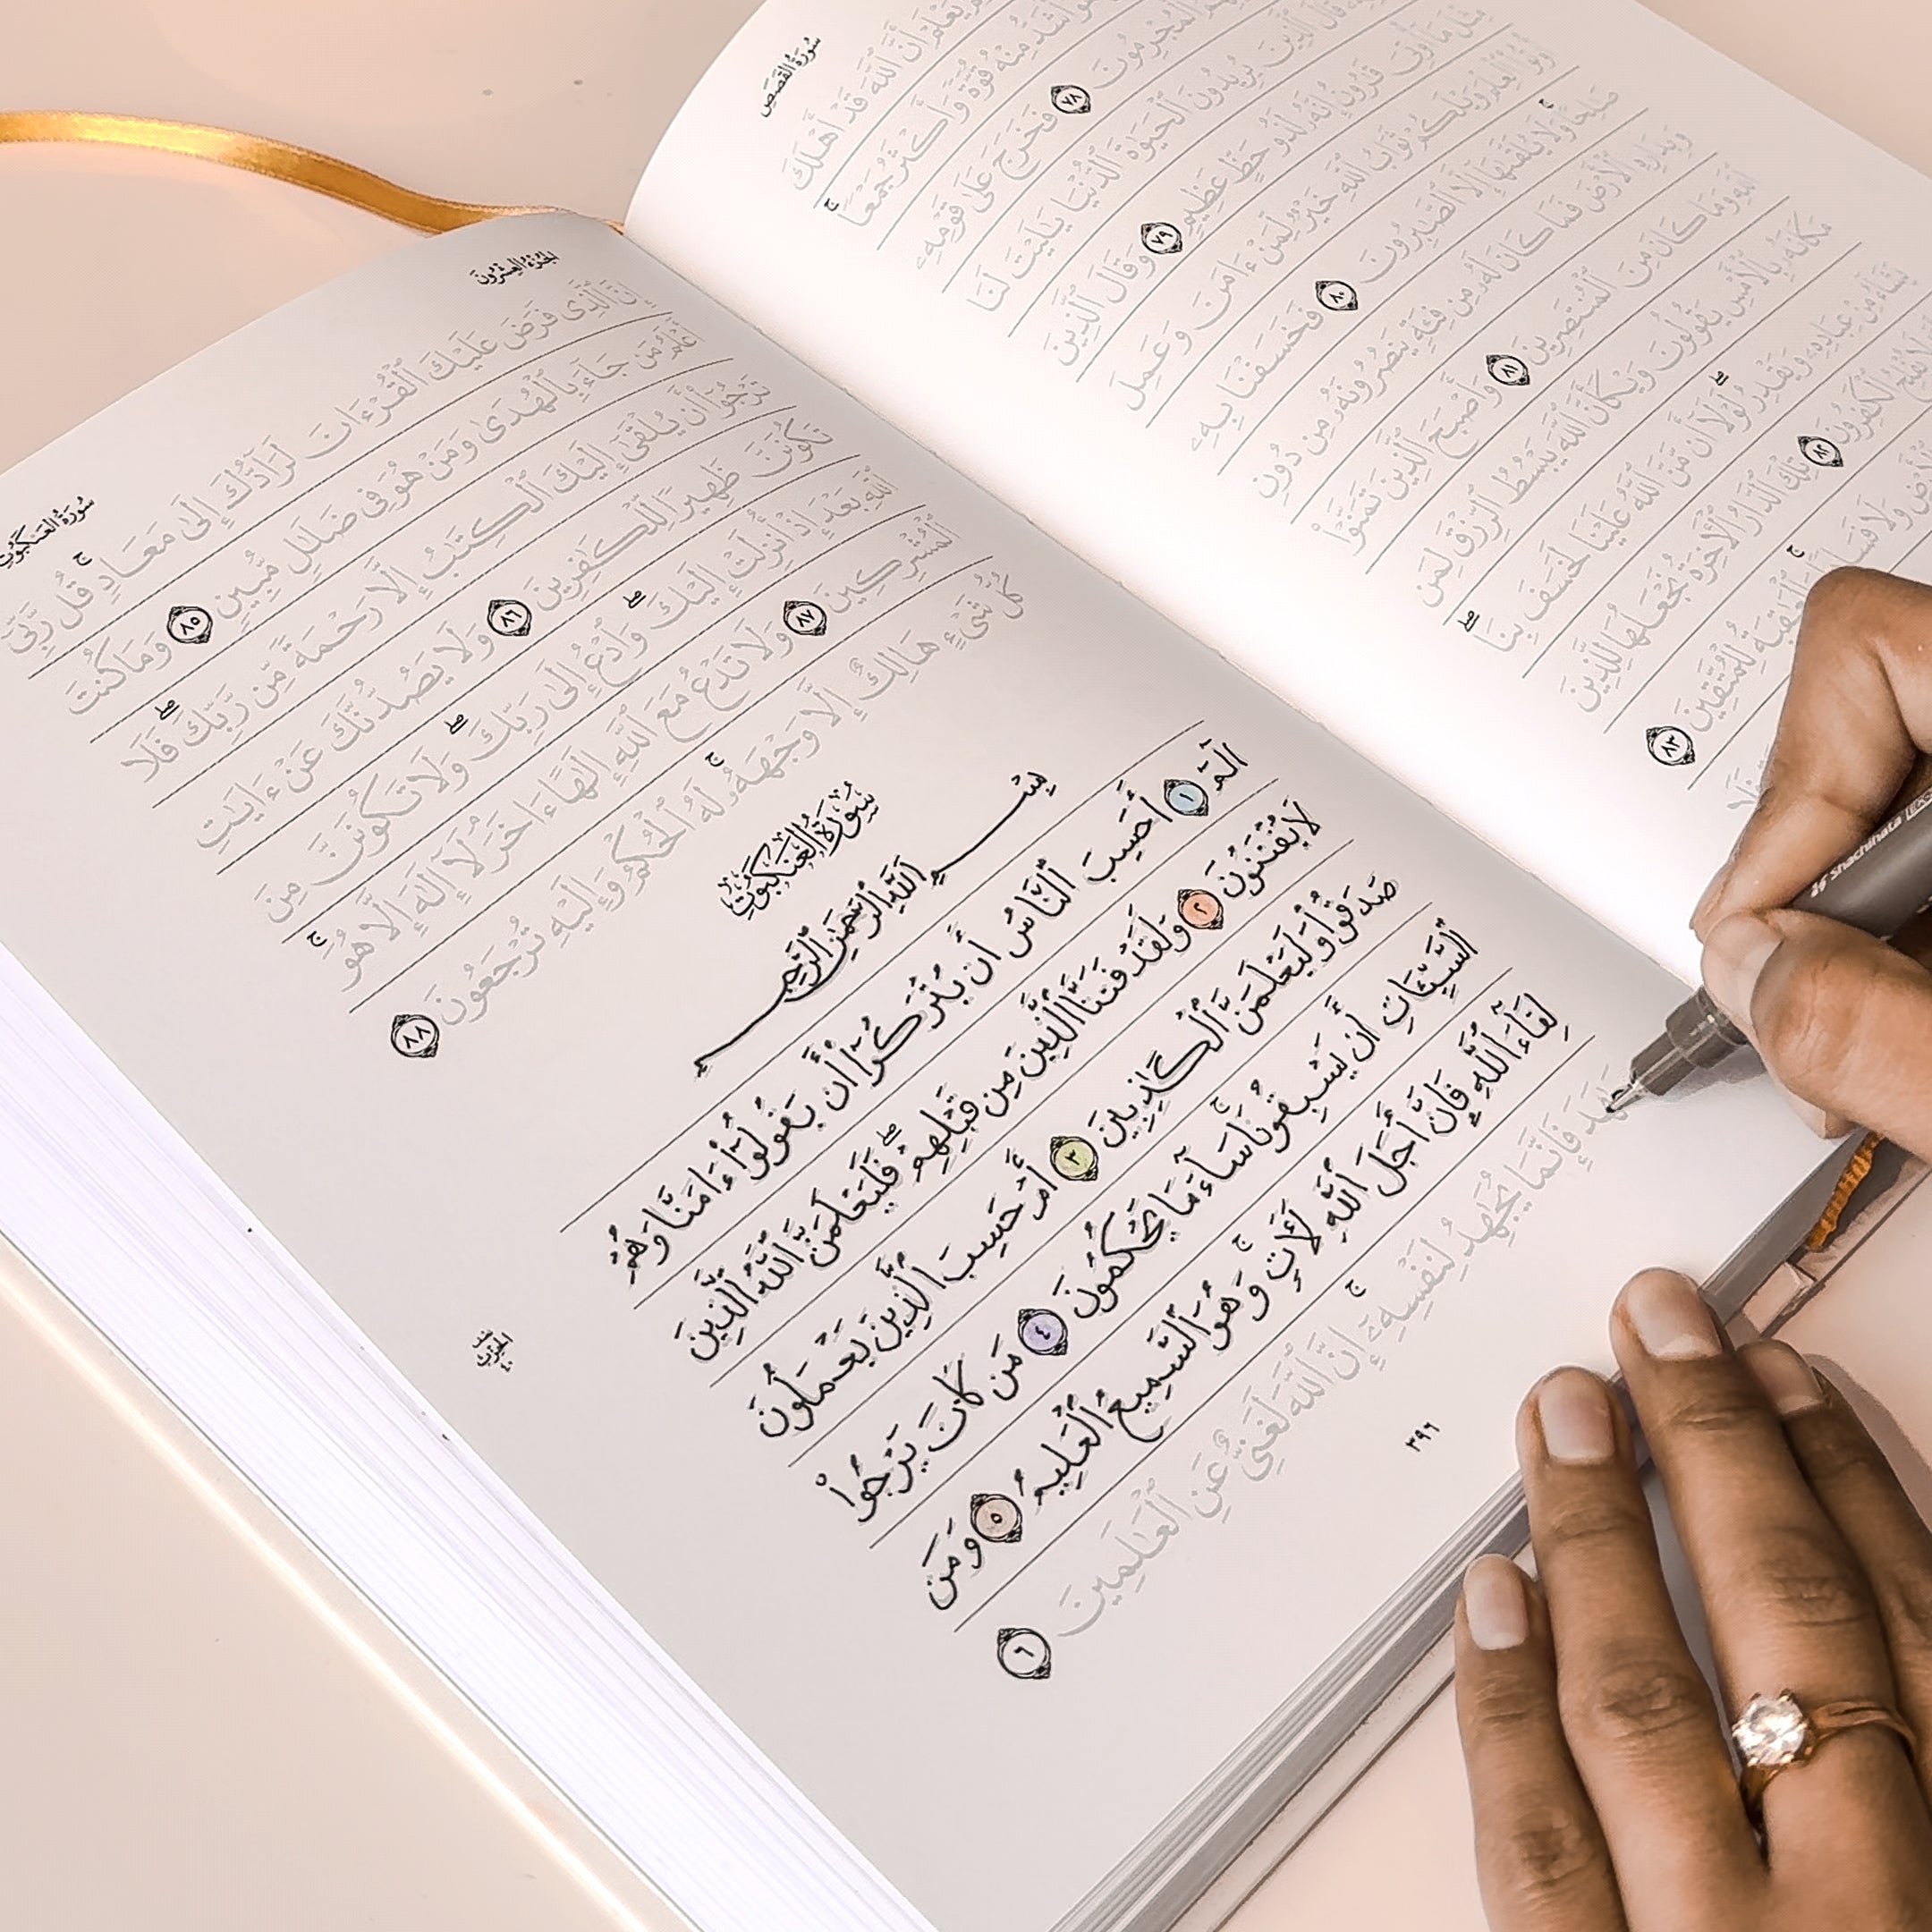 سُورَةُ القَصَصِ
يَعْلَمْ أَنَّ ٱللَّهَ قَدْ أَهْلَكَ
أَشَدُّ مِنْهُ قُوَّةً وَأَكْثَرُ جَمْعًا ۚ
ٱلْمُجْرِمُونَ ٧٨ فَخَرَجَ عَلَىٰ قَوْمِهِۦ
قَالَ ٱلَّذِينَ يُرِيدُونَ ٱلْحَيَوٰةَ ٱلدُّنْيَا يَٰلَيْتَ لَنَا
مِثْلَ مَآ أُوتِىَ قَٰرُونُ إِنَّهُۥ لَذُو حَظٍّ عَظِيمٍ ٧٩ وَقَالَ ٱلَّذِينَ
أُوتُوا۟ ٱلْعِلْمَ وَيْلَكُمْ ثَوَابُ ٱللَّهِ خَيْرٌ لِّمَنْ ءَامَنَ وَعَمِلَ
صَٰلِحًا ۚ وَلَا يُلَقَّىٰهَآ إِلَّا ٱلصَّٰبِرُونَ ٨٠ فَخَسَفْنَا بِهِۦ
وَبِدَارِهِ ٱلْأَرْضَ فَمَا كَانَ لَهُۥ مِن فِئَةٍ يَنصُرُونَهُۥ مِن دُونِ
ٱللَّهِ وَمَا كَانَ مِنَ ٱلْمُنتَصِرِينَ ٨١ وَأَصْبَحَ ٱلَّذِينَ تَمَنَّوْا۟
مَكَانَهُۥ بِٱلْأَمْسِ يَقُولُونَ وَيْكَأَنَّ ٱللَّهَ يَبْسُطُ ٱلرِّزْقَ لِمَن
يَشَآءُ مِنْ عِبَادِهِۦ وَيَقْدِرُ ۖ لَوْلَآ أَن مَّنَّ ٱللَّهُ عَلَيْنَا لَخَسَفَ بِنَا ۖ
لَا يُفْلِحُ ٱلْكَٰفِرُونَ ٨٢ تِلْكَ ٱلدَّارُ ٱلْءَاخِرَةُ نَجْعَلُهَا لِلَّذِينَ
ٱلْأَرْضِ وَلَا فَسَادًا ۚ وَٱلْعَٰقِبَةُ لِلْمُتَّقِينَ ٨٣
الجُزْءُ العِشْرُونَ
سُورَةُ العَنكَبُوتِ
إِنَّ ٱلَّذِى فَرَضَ عَلَيْكَ ٱلْقُرْءَانَ لَرَآدُّكَ إِلَىٰ مَعَادٍ ۚ قُل رَّبِّىٓ
أَعْلَمُ مَن جَآءَ بِٱلْهُدَىٰ وَمَنْ هُوَ فِى ضَلَٰلٍ مُّبِينٍ ٨٥ وَمَا كُنتَ
تَرْجُوٓا۟ أَن يُلْقَىٰٓ إِلَيْكَ ٱلْكِتَٰبُ إِلَّا رَحْمَةً مِّن رَّبِّكَ ۖ فَلَا
تَكُونَنَّ ظَهِيرًا لِّلْكَٰفِرِينَ ٨٦ وَلَا يَصُدُّنَّكَ عَنْ ءَايَٰتِ
ٱللَّهِ بَعْدَ إِذْ أُنزِلَتْ إِلَيْكَ ۖ وَٱدْعُ إِلَىٰ رَبِّكَ ۖ وَلَا تَكُونَنَّ مِنَ
ٱلْمُشْرِكِينَ ٨٧ وَلَا تَدْعُ مَعَ ٱللَّهِ إِلَٰهًا ءَاخَرَ ۘ لَآ إِلَٰهَ إِلَّا هُوَ ۚ
كُلُّ شَىْءٍ هَالِكٌ إِلَّا وَجْهَهُۥ ۚ لَهُ ٱلْحُكْمُ وَإِلَيْهِ تُرْجَعُونَ ٨٨
سُورَةُ العَنكَبُوتِ
بِسْمِ ٱللَّهِ ٱلرَّحْمَٰنِ ٱلرَّحِيمِ
الٓمٓ ١ أَحَسِبَ ٱلنَّاسُ أَن يُتْرَكُوٓا۟ أَن يَقُولُوٓا۟ ءَامَنَّا وَهُمْ
لَا يُفْتَنُونَ ٢ وَلَقَدْ فَتَنَّا ٱلَّذِينَ مِن قَبْلِهِمْ ۖ فَلَيَعْلَمَنَّ ٱللَّهُ ٱلَّذِينَ
صَدَقُوا۟ وَلَيَعْلَمَنَّ ٱلْكَٰذِبِينَ ٣ أَمْ حَسِبَ ٱلَّذِينَ يَعْمَلُونَ
ٱلسَّيِّـَٔاتِ أَن يَسْبِقُونَا ۚ سَآءَ مَا يَحْكُمُونَ ٤ مَن كَانَ يَرْجُوا۟
لِقَآءَ ٱللَّهِ فَإِنَّ أَجَلَ ٱللَّهِ لَءَاتٍ ۚ وَهُوَ ٱلسَّمِيعُ ٱلْعَلِيمُ ٥ وَمَن
جَٰهَدَ فَإِنَّمَا يُجَٰهِدُ لِنَفْسِهِۦٓ ۚ إِنَّ ٱللَّهَ لَغَنِىٌّ عَنِ ٱلْعَٰلَمِينَ ٦
الحِزْبِ
٤٠
٣٩٦
Shachihata